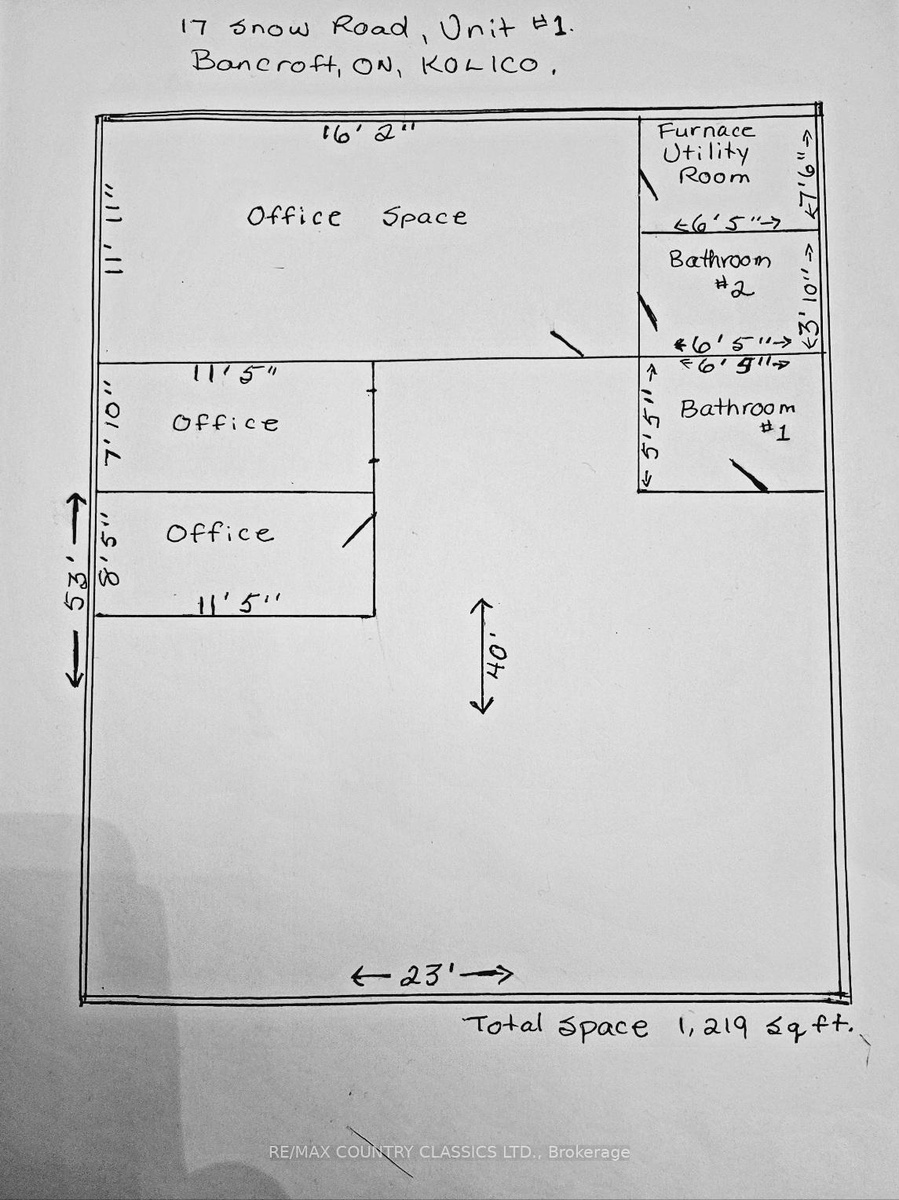 17 Snow Road, Unit #1.
Bancroft, ON, KOLICO.
16' 2"
Furnace
Utility
Room
7'6"
11' 11"
Office Space
6' 5"
Bathroom
#2
3' 10"
6' 5"
6' 5"
11' 5"
7' 10"
Office
5' 5"
Bathroom
#1
Office
8' 5"
53'
11' 5"
40'
23'
Total Space 1,219 sq ft.
RE/MAX COUNTRY CLASSICS LTD., Brokerage